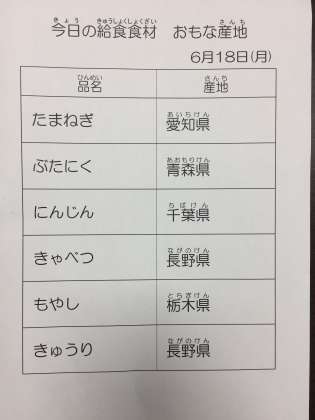 きょう きゅうしょくしょくざい さんち
今日の給食食材 おもな産地
6月18日(月)
ひんめい さんち
品名 産地
あいちけん
たまねぎ 愛知県
あおもりけん
ぶたにく 青森県
ちばけん
にんじん 千葉県
ながのけん
きゃべつ 長野県
とちぎけん
もやし 栃木県
ながのけん
きゅうり 長野県